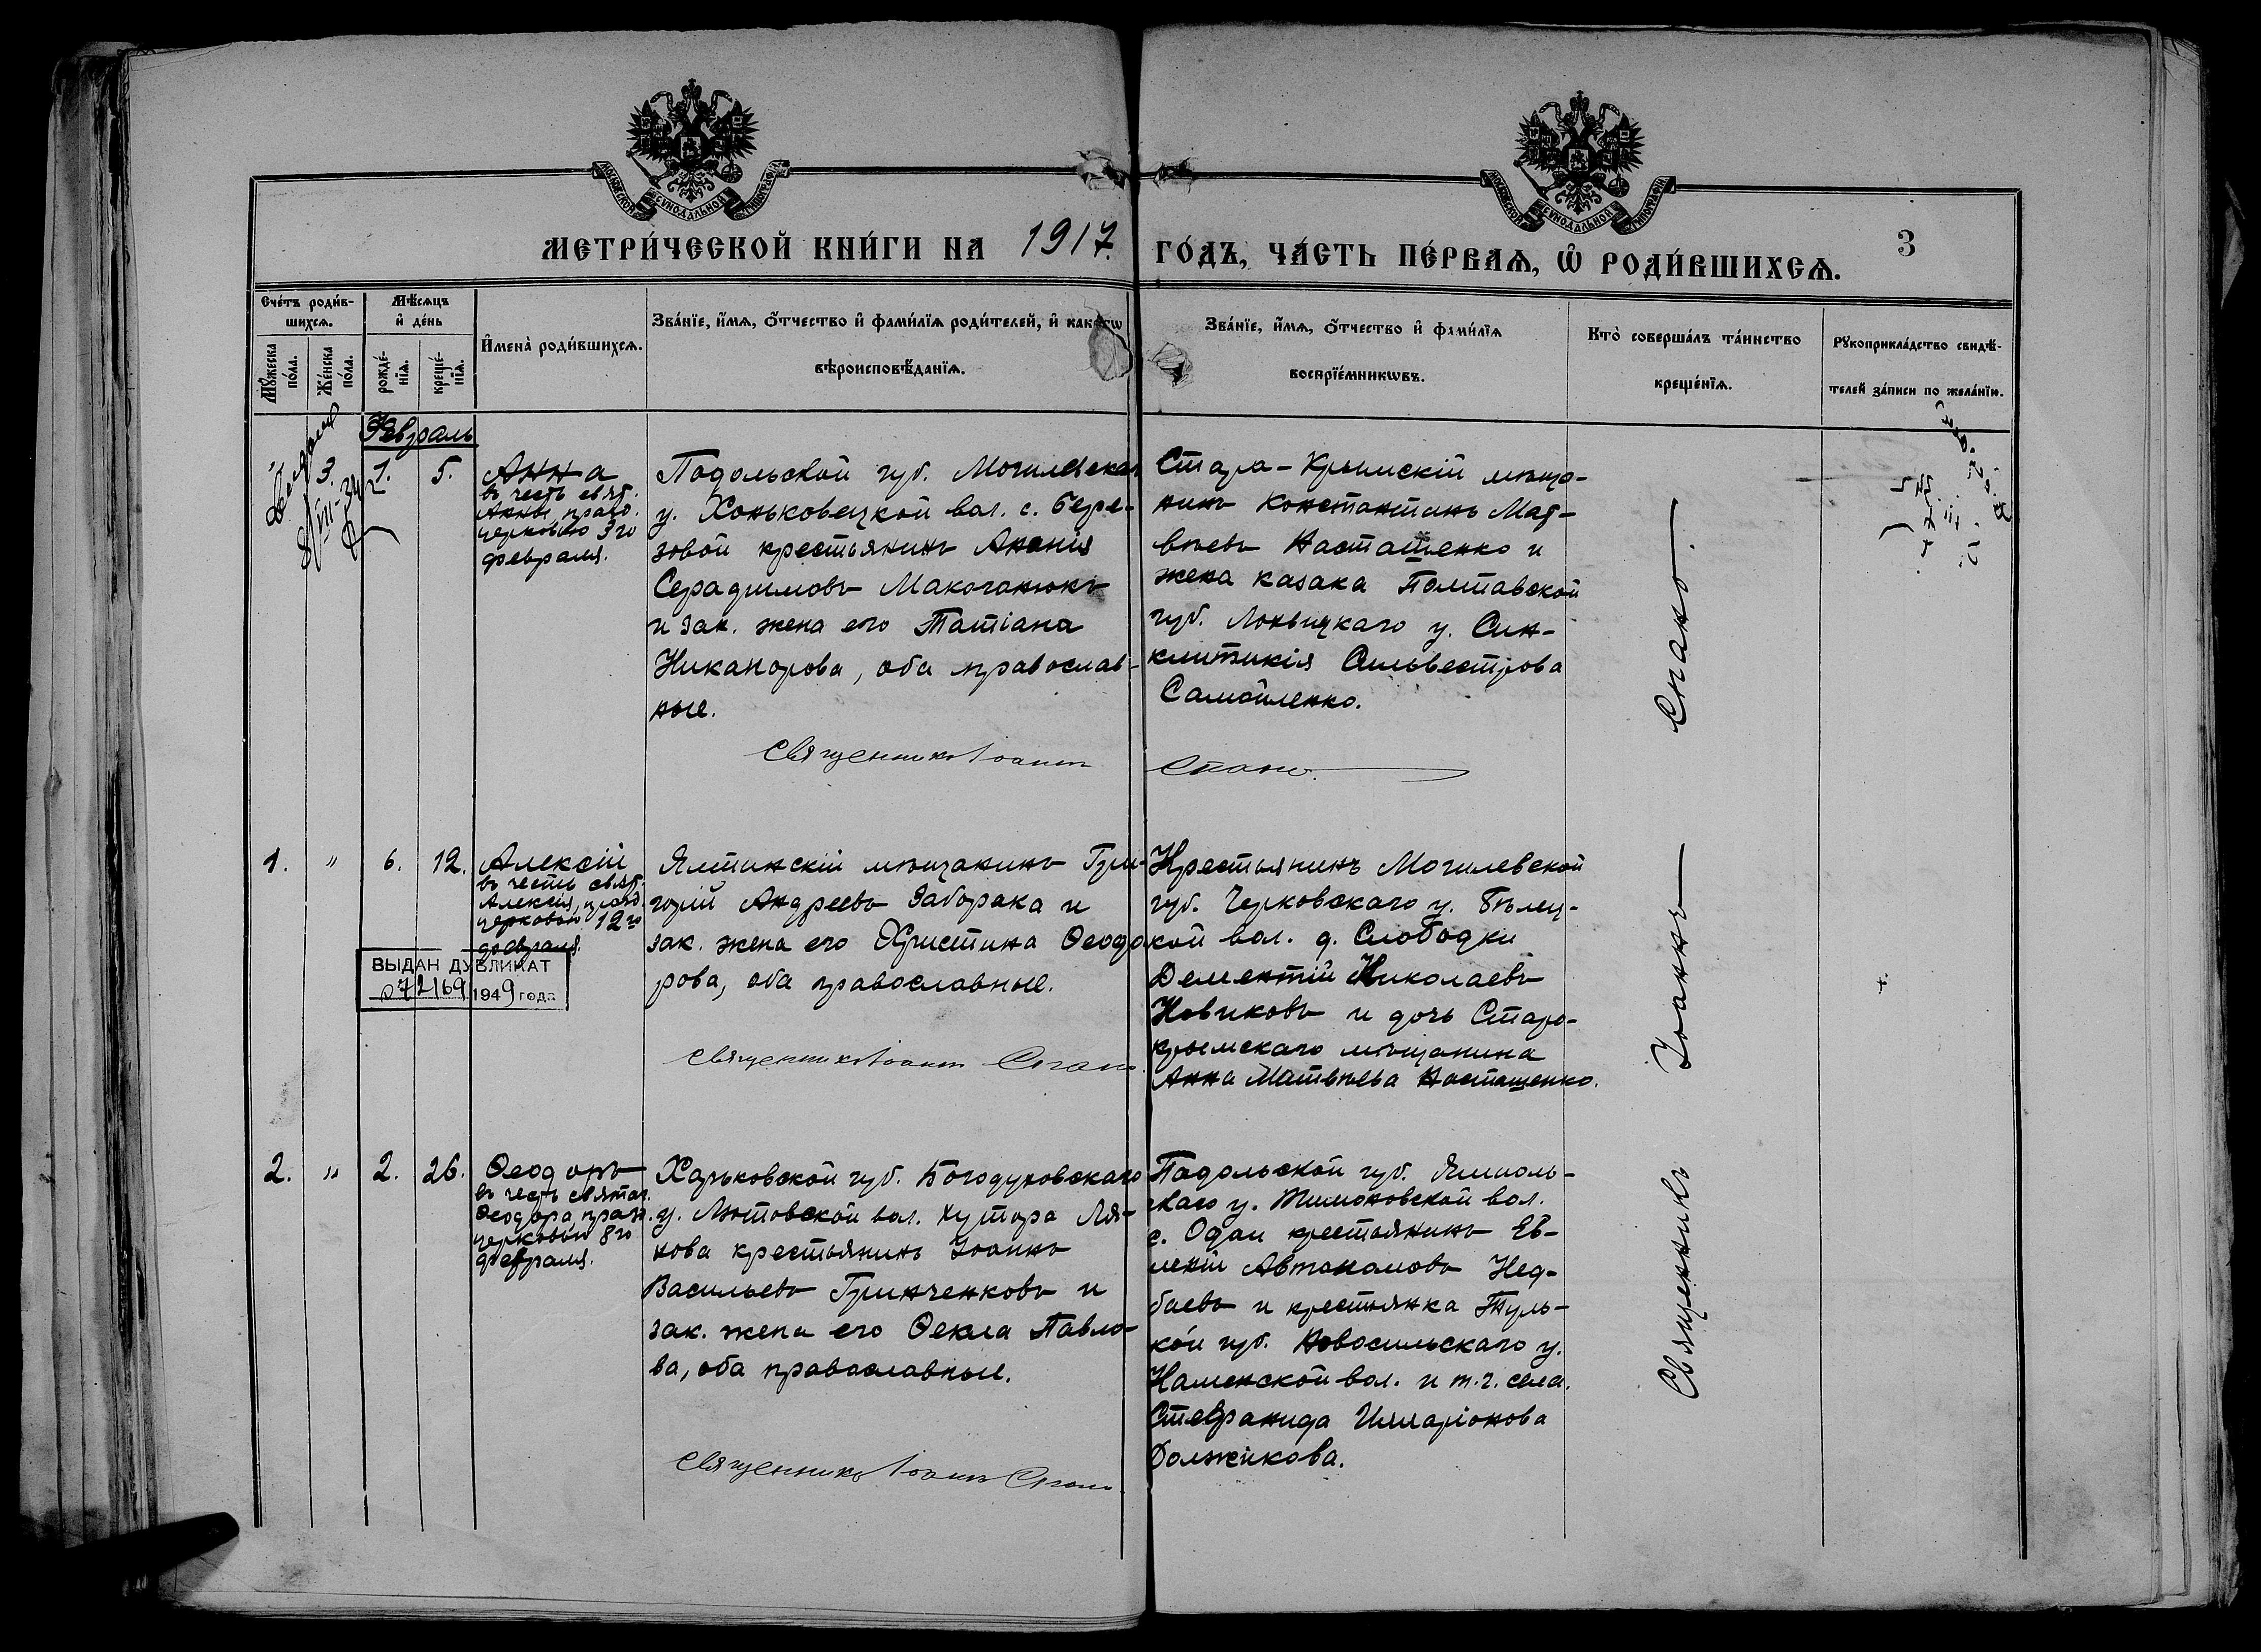 МОСКОВСКОЙ СУНОДАЛЬНОЙ ТИПОГРАФІИ
МОСКОВСКОЙ СУНОДАЛЬНОЙ ТИПОГРАФІИ
МЕТРИ́ЧЕСКОЙ КНИ́ГИ НА 1917. ГО́ДЪ, ЧА́СТЬ ПЕ́РВАѦ, Ѡ҆ РОДИ́ВШИХСѦ.
3
Сче́тъ роди́в-
шихсѧ.
Мꙋ́жеска
по́ла.
Же́нска
по́ла.
Мѣ́сѧцъ
и҆ де́нь
рожде́-
нїѧ.
креще́-
нїѧ.
И҆мена̀ роди́вшихсѧ.
Зва́нїе, и҆́мѧ, ѻ҆́тчество и҆ фами́лїѧ роди́телей, и҆ како́гѡ
вѣроисповѣ́данїѧ.
Зва́нїе, и҆́мѧ, ѻ҆́тчество и҆ фами́лїѧ
воспрїе́мникѡвъ.
Кто̀ соверша́лъ та́инство
креще́нїѧ.
Рꙋкоприкла́дство свидѣ́-
телей за́писи по жела́нїю.
Февраль
"
3.
1.
5.
Анна
въ честь свят.
Анны, празд.
церковью 3го
февраля.
Подольской губ. Могилевскаго
у. Хоньковецкой вол. с. Бере-
зовой крестьянинъ Ананія
Серафимовъ Макоганюкъ
и зак. жена его Татіана
Никанорова, оба православ-
ные.
Священникъ Іоаннъ Спано.
Стара-Крымскій мѣща-
нинъ Константинъ Мат-
вѣевъ Насташенко и
жена казака Полтавской
губ. Лохвицкаго у. Син-
клитикія Сильвестрова
Самойленко.
1.
"
6.
12.
Алексій
въ честь свят.
Алексія, празд.
церковью 12го
февраля.
ВЫДАН ДУБЛИКАТ
1949 года
Ялтинскій мѣщанинъ Гри-
горій Андреевъ Заборака и
зак. жена его Христина Ѳеодо
рова, оба православные.
Священникъ Іоаннъ Спано.
Крестьянинъ Могилевской
губ. Чериковскаго у. Бѣлец-
кой вол. д. Слободки
Дементій Николаевъ
Новиковъ и дочь Старо-
крымскаго мѣщанина
Анна Матвѣева Насташенко.
2.
"
2.
26.
Ѳеодоръ
въ честь святаг.
Ѳеодора, празд.
церковью 8го
февраля.
Харьковской губ. Богодуховскаго
у. Лютовской вол. хутора Ля-
хова крестьянинъ Іоаннъ
Васильевъ Гринченковъ и
зак. жена его Ѳекла Павло-
ва, оба православные.
Священникъ Іоаннъ Спано.
Подольской губ. Ямполь-
скаго у. Тимоновской вол.
с. Одаи крестьянинъ Ев-
меній Автономовъ Нед-
баевъ и крестьянка Туль-
кой губ. Новосильскаго у.
Каменской вол. и т.ч. села.
Стефанида Илларіонова
Должикова.
Священникъ Іоаннъ Спано.